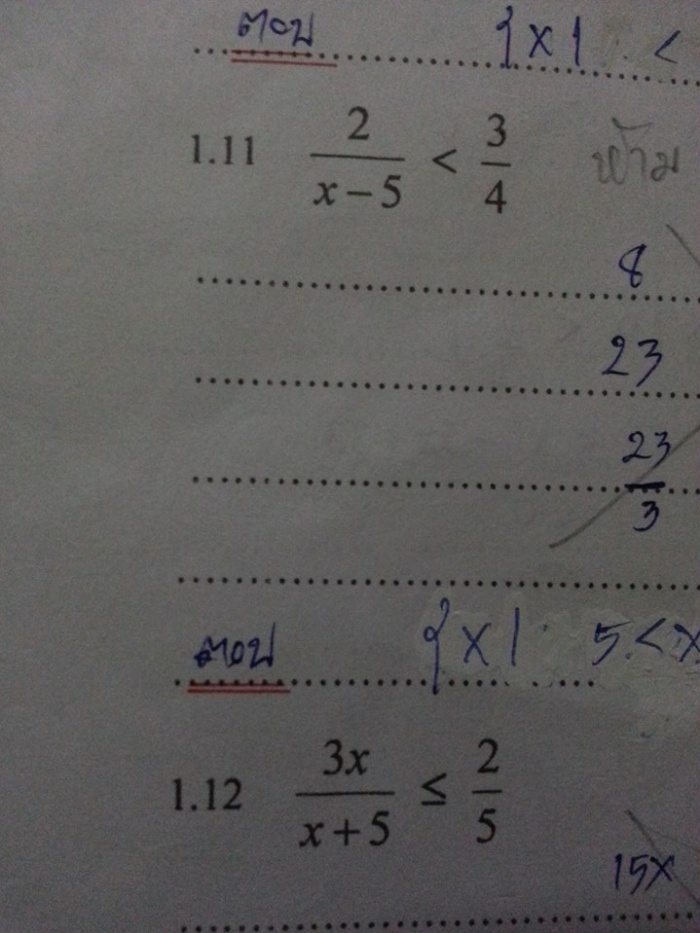 ตอบ {x| <
1.11 2/(x-5) < 3/4 ห้าม
8
23
23/3
ตอบ {x| 5 < x
1.12 3x/(x+5) ≤ 2/5
15x